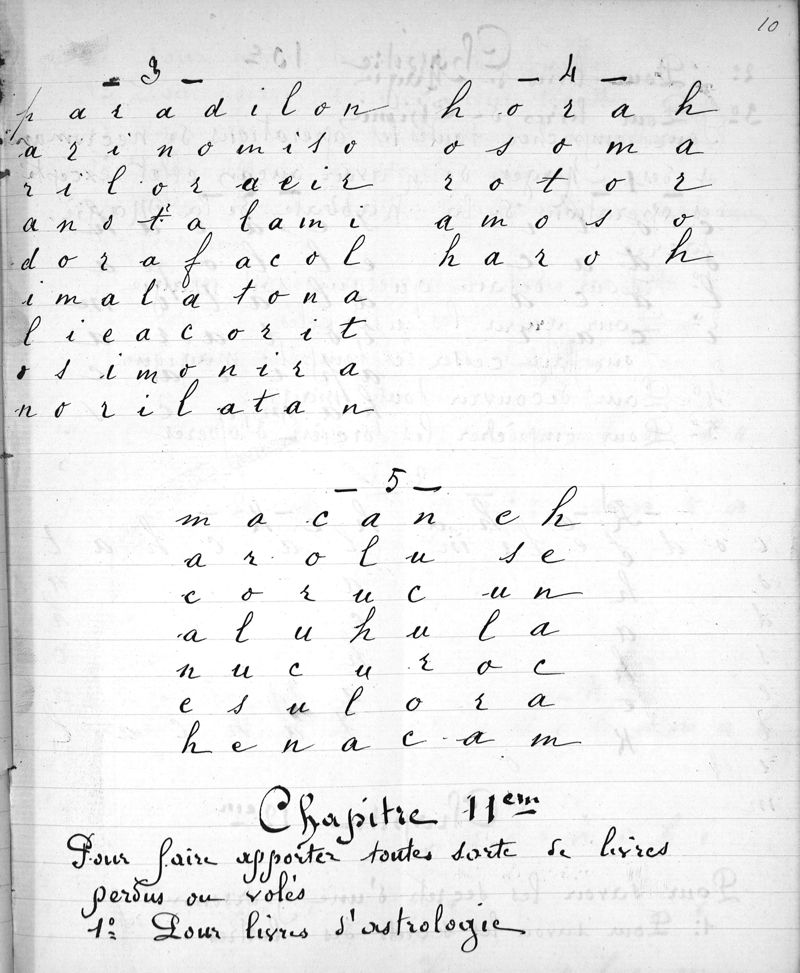 10
- 3 -
p a r a d i l o n
a r i n o m i s o
r i l o r a e i r
a n o t a l a m i
d o r a f a c o l
i m a l a t o n a
l i e a c o r i t
o s i m o n i r a
n o r i l a t a n
- 4 -
h o r a h
o s o m a
r o t o r
a m o s o
h a r o h
- 5 -
m a c a n e h
a r o l u s e
c o r u c u n
a l u h u l a
n u c u r o c
e s u l o r a
h e n a c a m
Chapitre 11em
Pour faire apporter toutes sorte de livres
perdus ou volés
1º Pour livres d'astrologie